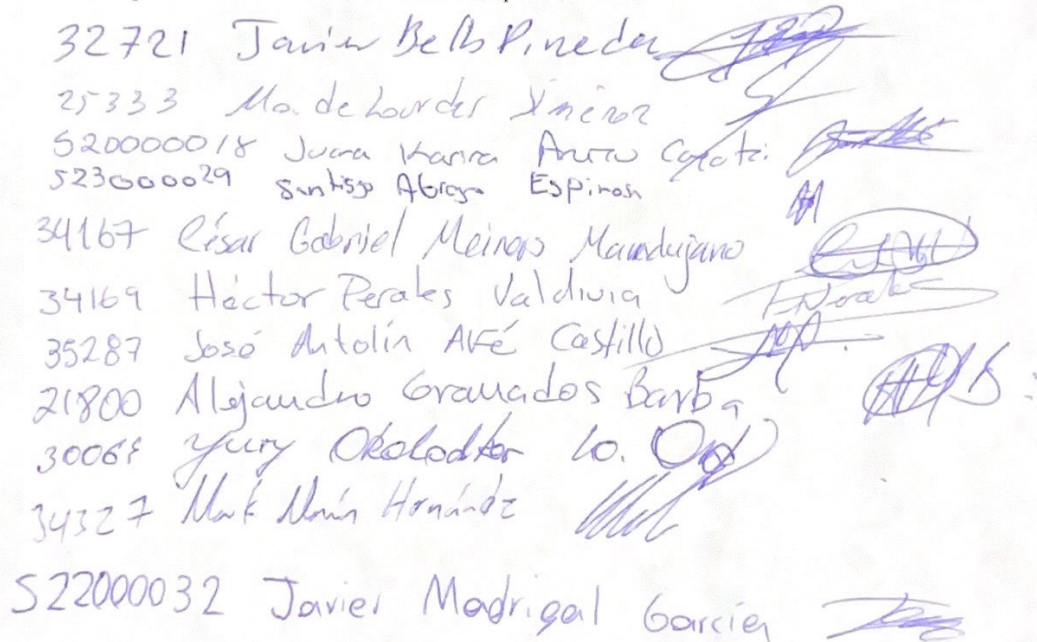 32721 Javier Bello Pineda
25333 Ma. de Lourdes Jiménez
S20000018 Juana Karina
S23000029 Santiago Espinosa
34167 César Gabriel Meiners Mandujano
34169 Héctor Perales Valdivia
35287 José Antolín Aké Castillo
21800 Alejandro Granados Barba
Yury
34327 Mark Marín Hernández
S22000032 Javier Madrigal García